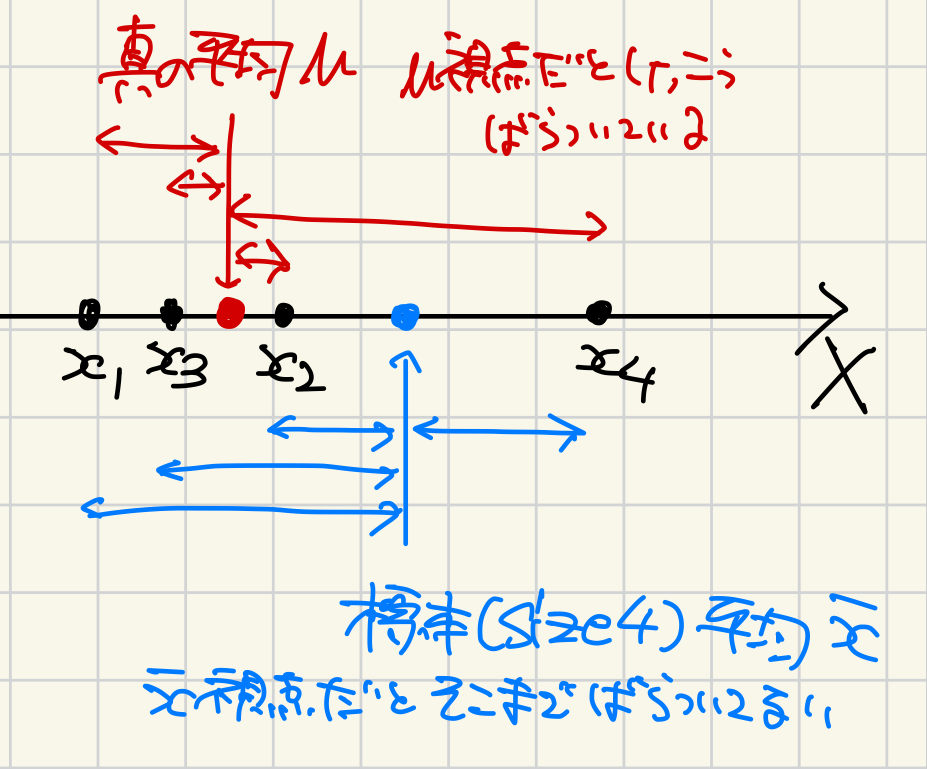 真の平均μ
μ視点だとけっこう
ばらついている
x₁
x₃
x₂
x₄
X
標本(size4)平均x̄
x̄視点だとそこまでばらついてない